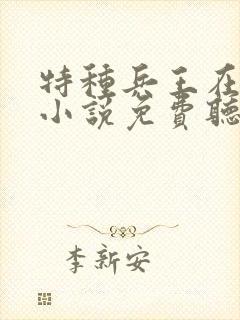 特種兵王在
小說免費聽
李新安